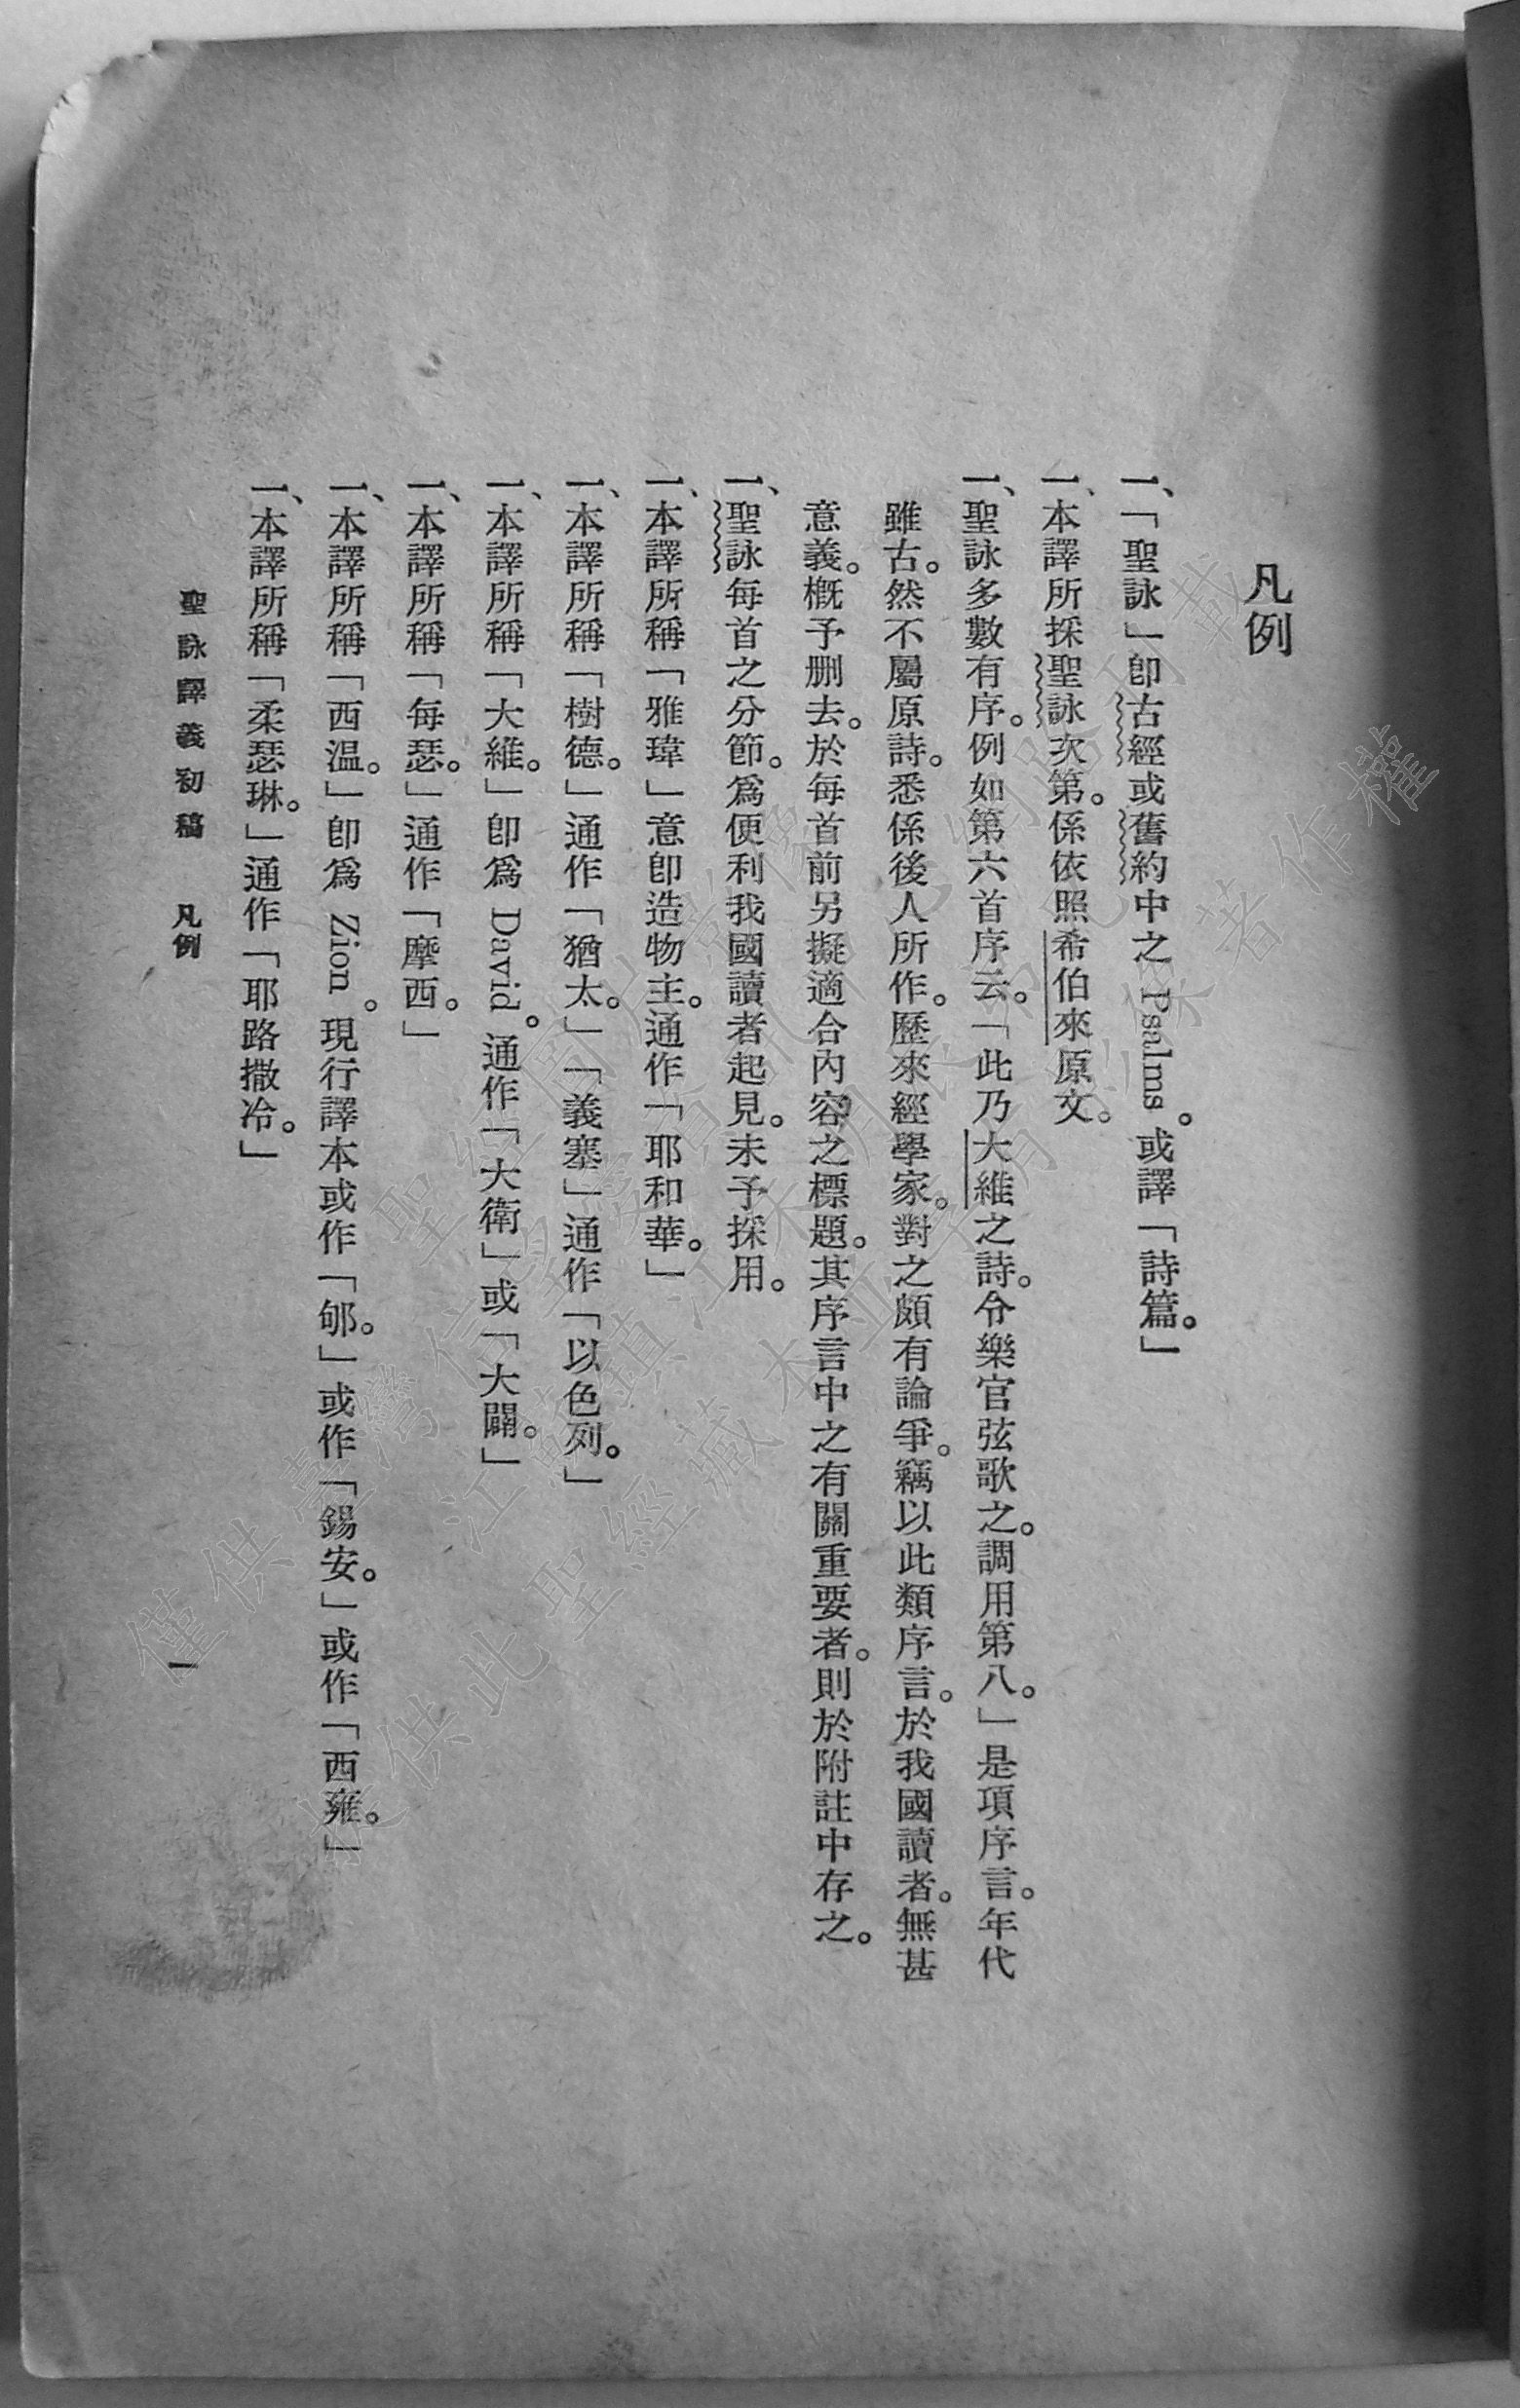 凡例
一、「聖詠」卽古經或舊約中之 Psalms。或譯「詩篇。」
一、本譯所採聖詠次第。係依照希伯來原文。
一、聖詠多數有序。例如第六首序云。「此乃大維之詩。令樂官弦歌之。調用第八。」是項序言。年代
雖古。然不屬原詩。悉係後人所作。歷來經學家。對之頗有論爭。竊以此類序言。於我國讀者。無甚
意義。槪予删去。於每首前另擬適合內容之標題。其序言中之有關重要者。則於附註中存之。
一、聖詠每首之分節。爲便利我國讀者起見。未予採用。
一、本譯所稱「雅瑋」意卽造物主。通作「耶和華。」
一、本譯所稱「樹德。」通作「猶太。」「義塞」通作「以色列。」
一、本譯所稱「大維。」卽爲 David。通作「大衛」或「大闢。」
一、本譯所稱「每瑟。」通作「摩西。」
一、本譯所稱「西温。」卽爲 Zion。現行譯本或作「郇。」或作「錫安。」或作「西雍。」
一、本譯所稱「柔瑟琳。」通作「耶路撒冷。」
聖詠譯義初稿 凡例
一